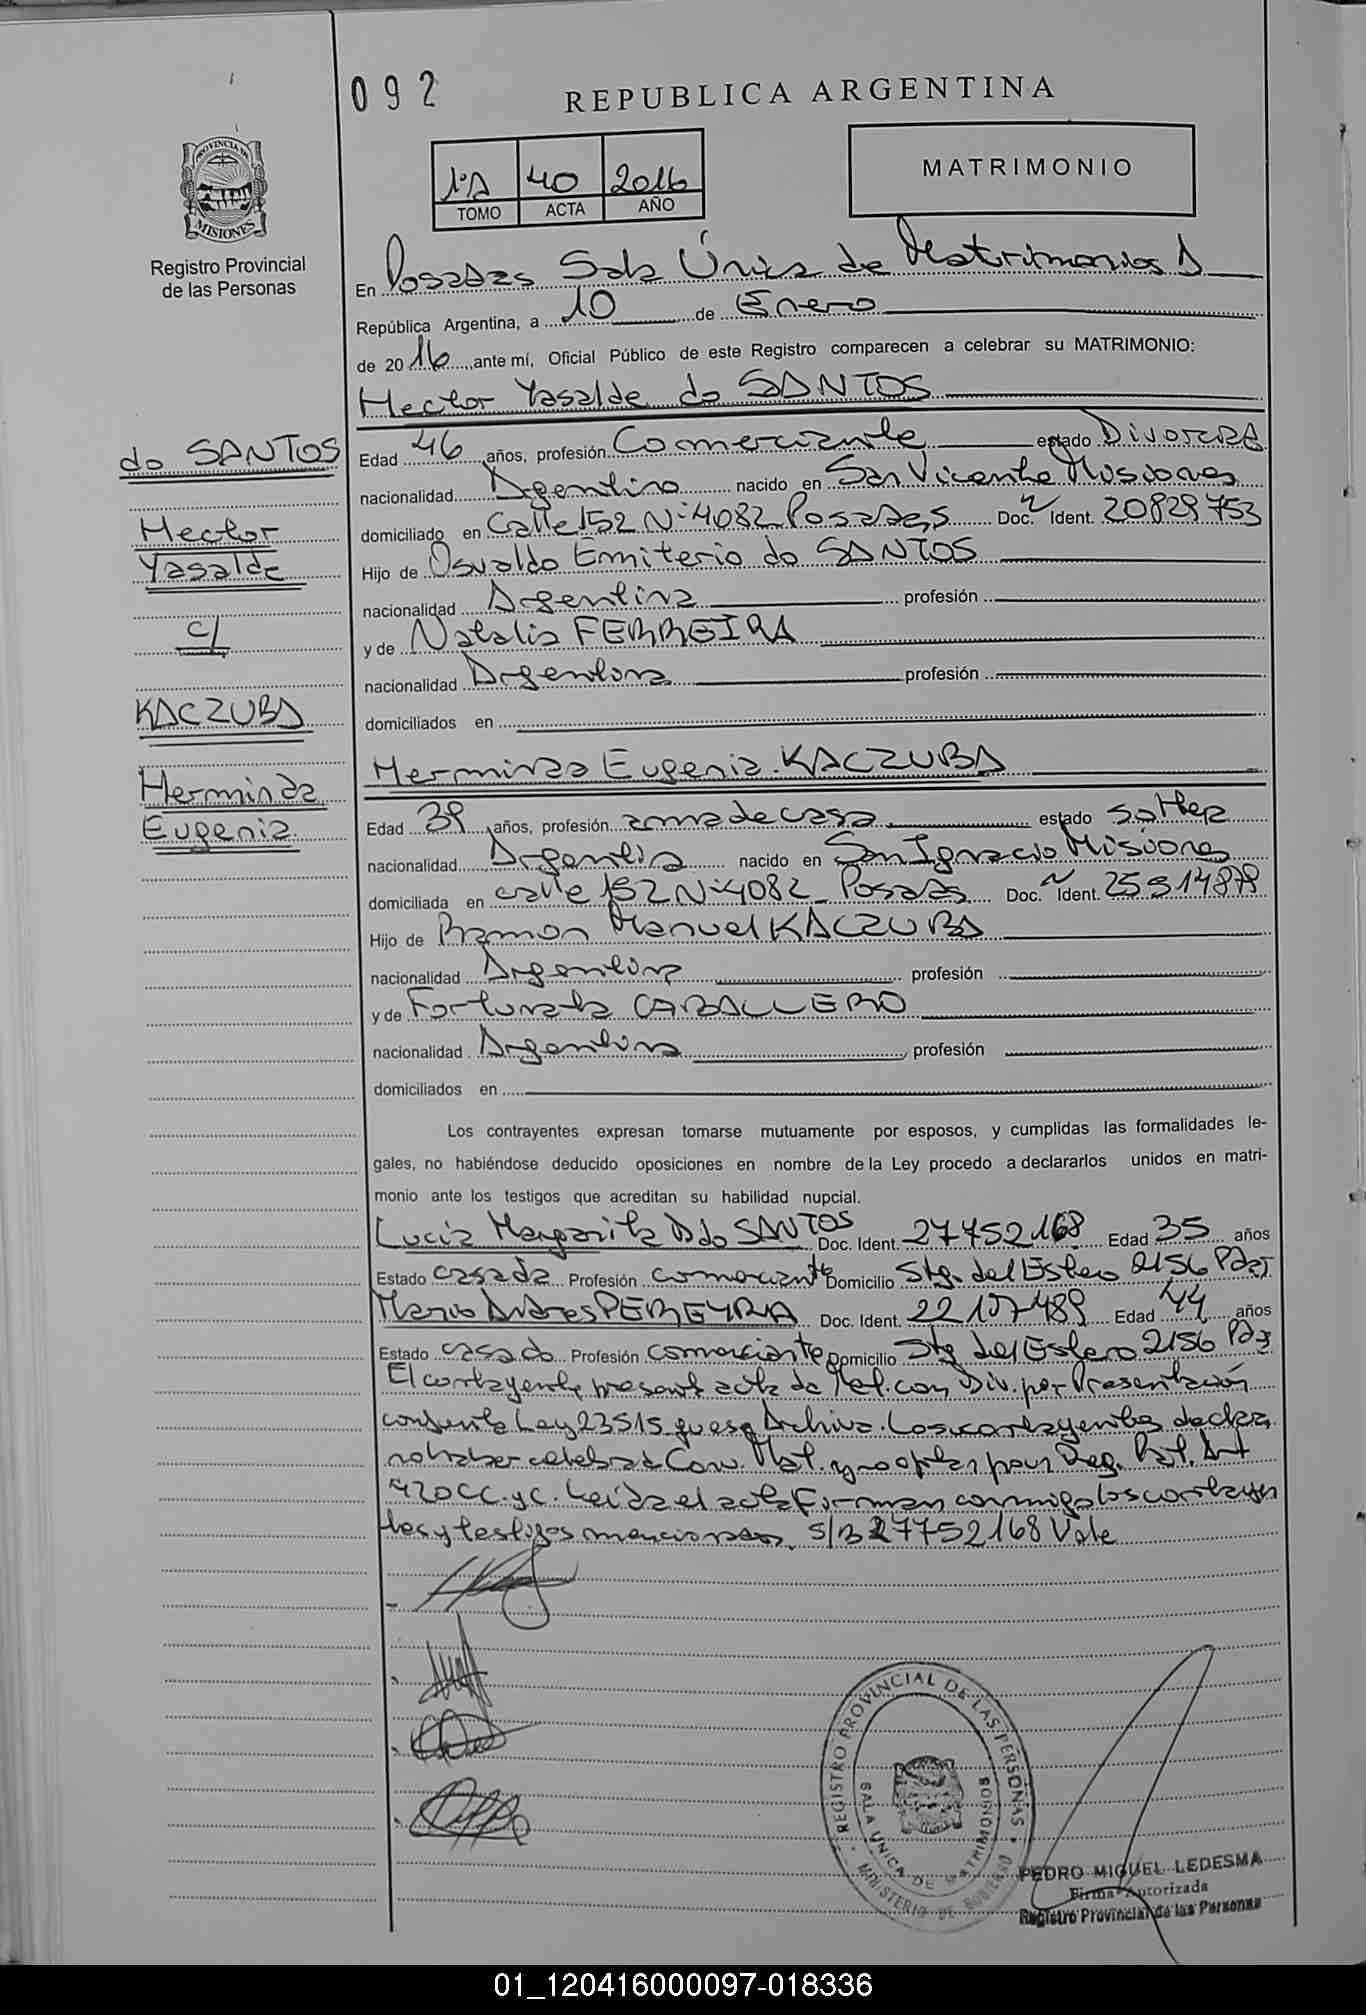 092
REPUBLICA ARGENTINA
PROVINCIA DE
MISIONES
Registro Provincial
de las Personas
1ºA 40 2016
TOMO ACTA AÑO
MATRIMONIO
En Posadas Sala Única de Matrimonios A
República Argentina, a 10 de Enero
de 2016 ante mí, Oficial Público de este Registro comparecen a celebrar su MATRIMONIO:
Hector Yasalde do SANTOS
do SANTOS
Hector
Yasalde
c/
KACZUBA
Herminda
Eugenia
Edad 46 años, profesión Comerciante estado Divorcia
nacionalidad Argentina nacido en San Vicente Misiones
domiciliado en Calle 152 Nº 4082 Posadas Doc. Ident. 20829753
Hijo de Osvaldo Emiterio do SANTOS
nacionalidad Argentina profesión
y de Natalia FERREIRA
nacionalidad Argentina profesión
domiciliados en
Herminda Eugenia KACZUBA
Edad 39 años, profesión ama de casa estado soltera
nacionalidad Argentina nacido en San Ignacio Misiones
domiciliada en calle 152 Nº 4082 Posadas Doc. Ident. 25914878
Hijo de Ramon Manuel KACZUBA
nacionalidad Argentina profesión
y de Fortunata CABALLERO
nacionalidad Argentina profesión
domiciliados en
Los contrayentes expresan tomarse mutuamente por esposos, y cumplidas las formalidades le-
gales, no habiéndose deducido oposiciones en nombre de la Ley procedo a declararlos unidos en matri-
monio ante los testigos que acreditan su habilidad nupcial.
Lucia Margarita do SANTOS Doc. Ident. 27752168 Edad 35 años
Estado casada Profesión comerciante Domicilio Stg. del Estero 2156 Pdas
Mario Andres PEREYRA Doc. Ident. 22157489 Edad 44 años
Estado casado Profesión comerciante Domicilio Stg del Estero 2156 Pdas
El contrayente presenta acta de Mat. con Div. por Presentación
conjunta Ley 23515 que se Archiva. Los contrayentes declaran
no haber celebrado Conv. Mat. y no optan por Reg. Pat. Art
420 CC. y C. Leida el acta Firman conmigo los contrayen
tes y testigos mencionados. S/B 27752168 Vale
REGISTRO PROVINCIAL DE LAS PERSONAS
SALA UNICA DE MATRIMONIOS
MINISTERIO DE GOBIERNO
PEDRO MIGUEL LEDESMA
Firma Autorizada
Registro Provincial de las Personas
01_120416000097-018336